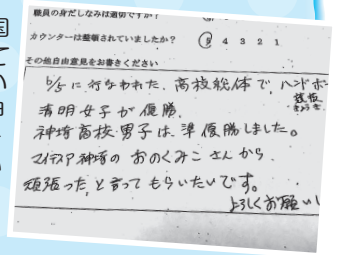 職員の身だしなみは適切ですか?
カウンターは整頓されていましたか? 5 4 3 2 1
その他自由意見をお書きください
6/5に行なわれた、高校総体で、ハンドボ
競技
清明女子が優勝、
神埼高校男子は、準優勝しました。
マイティア神埼のおのくみこさんから、
頑張った、と言ってもらいたいです。
よろしくお願いし